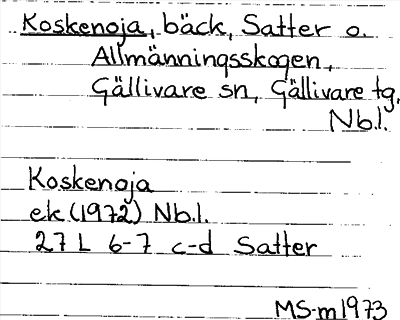 Koskenoja, bäck, Satter o.
Allmänningsskogen,
Gällivare sn, Gällivare tg,
Nb.l.
Koskenoja
ek (1972) Nb.l.
27 L 6-7 c-d Satter
MS-m 1973